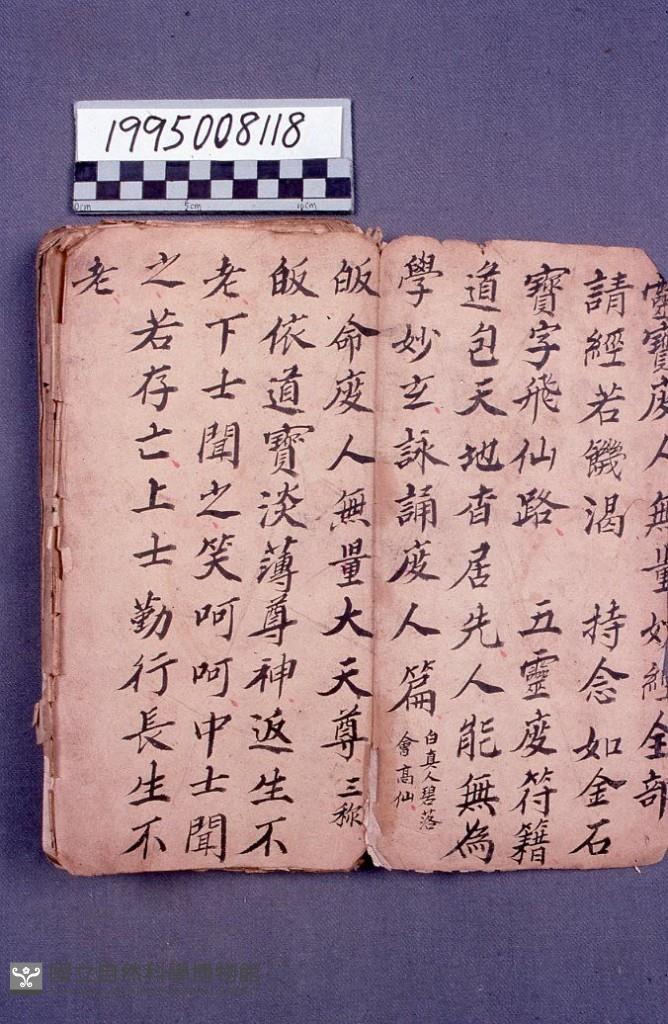 1995008118
0cm 5cm 10cm
靈寶度人無量妙經全部
請經若饑渴 持念如金石
寶字飛仙路 五靈度符籍
道包天地杳居先人能無為
學妙玄詠誦度人篇 白真人碧落會高仙
皈命度人無量大天尊 三称
皈依道寶淡薄尊神返生不
老下士聞之笑呵呵中士聞
之若存亡上士勤行長生不
老
國立自然科學博物館